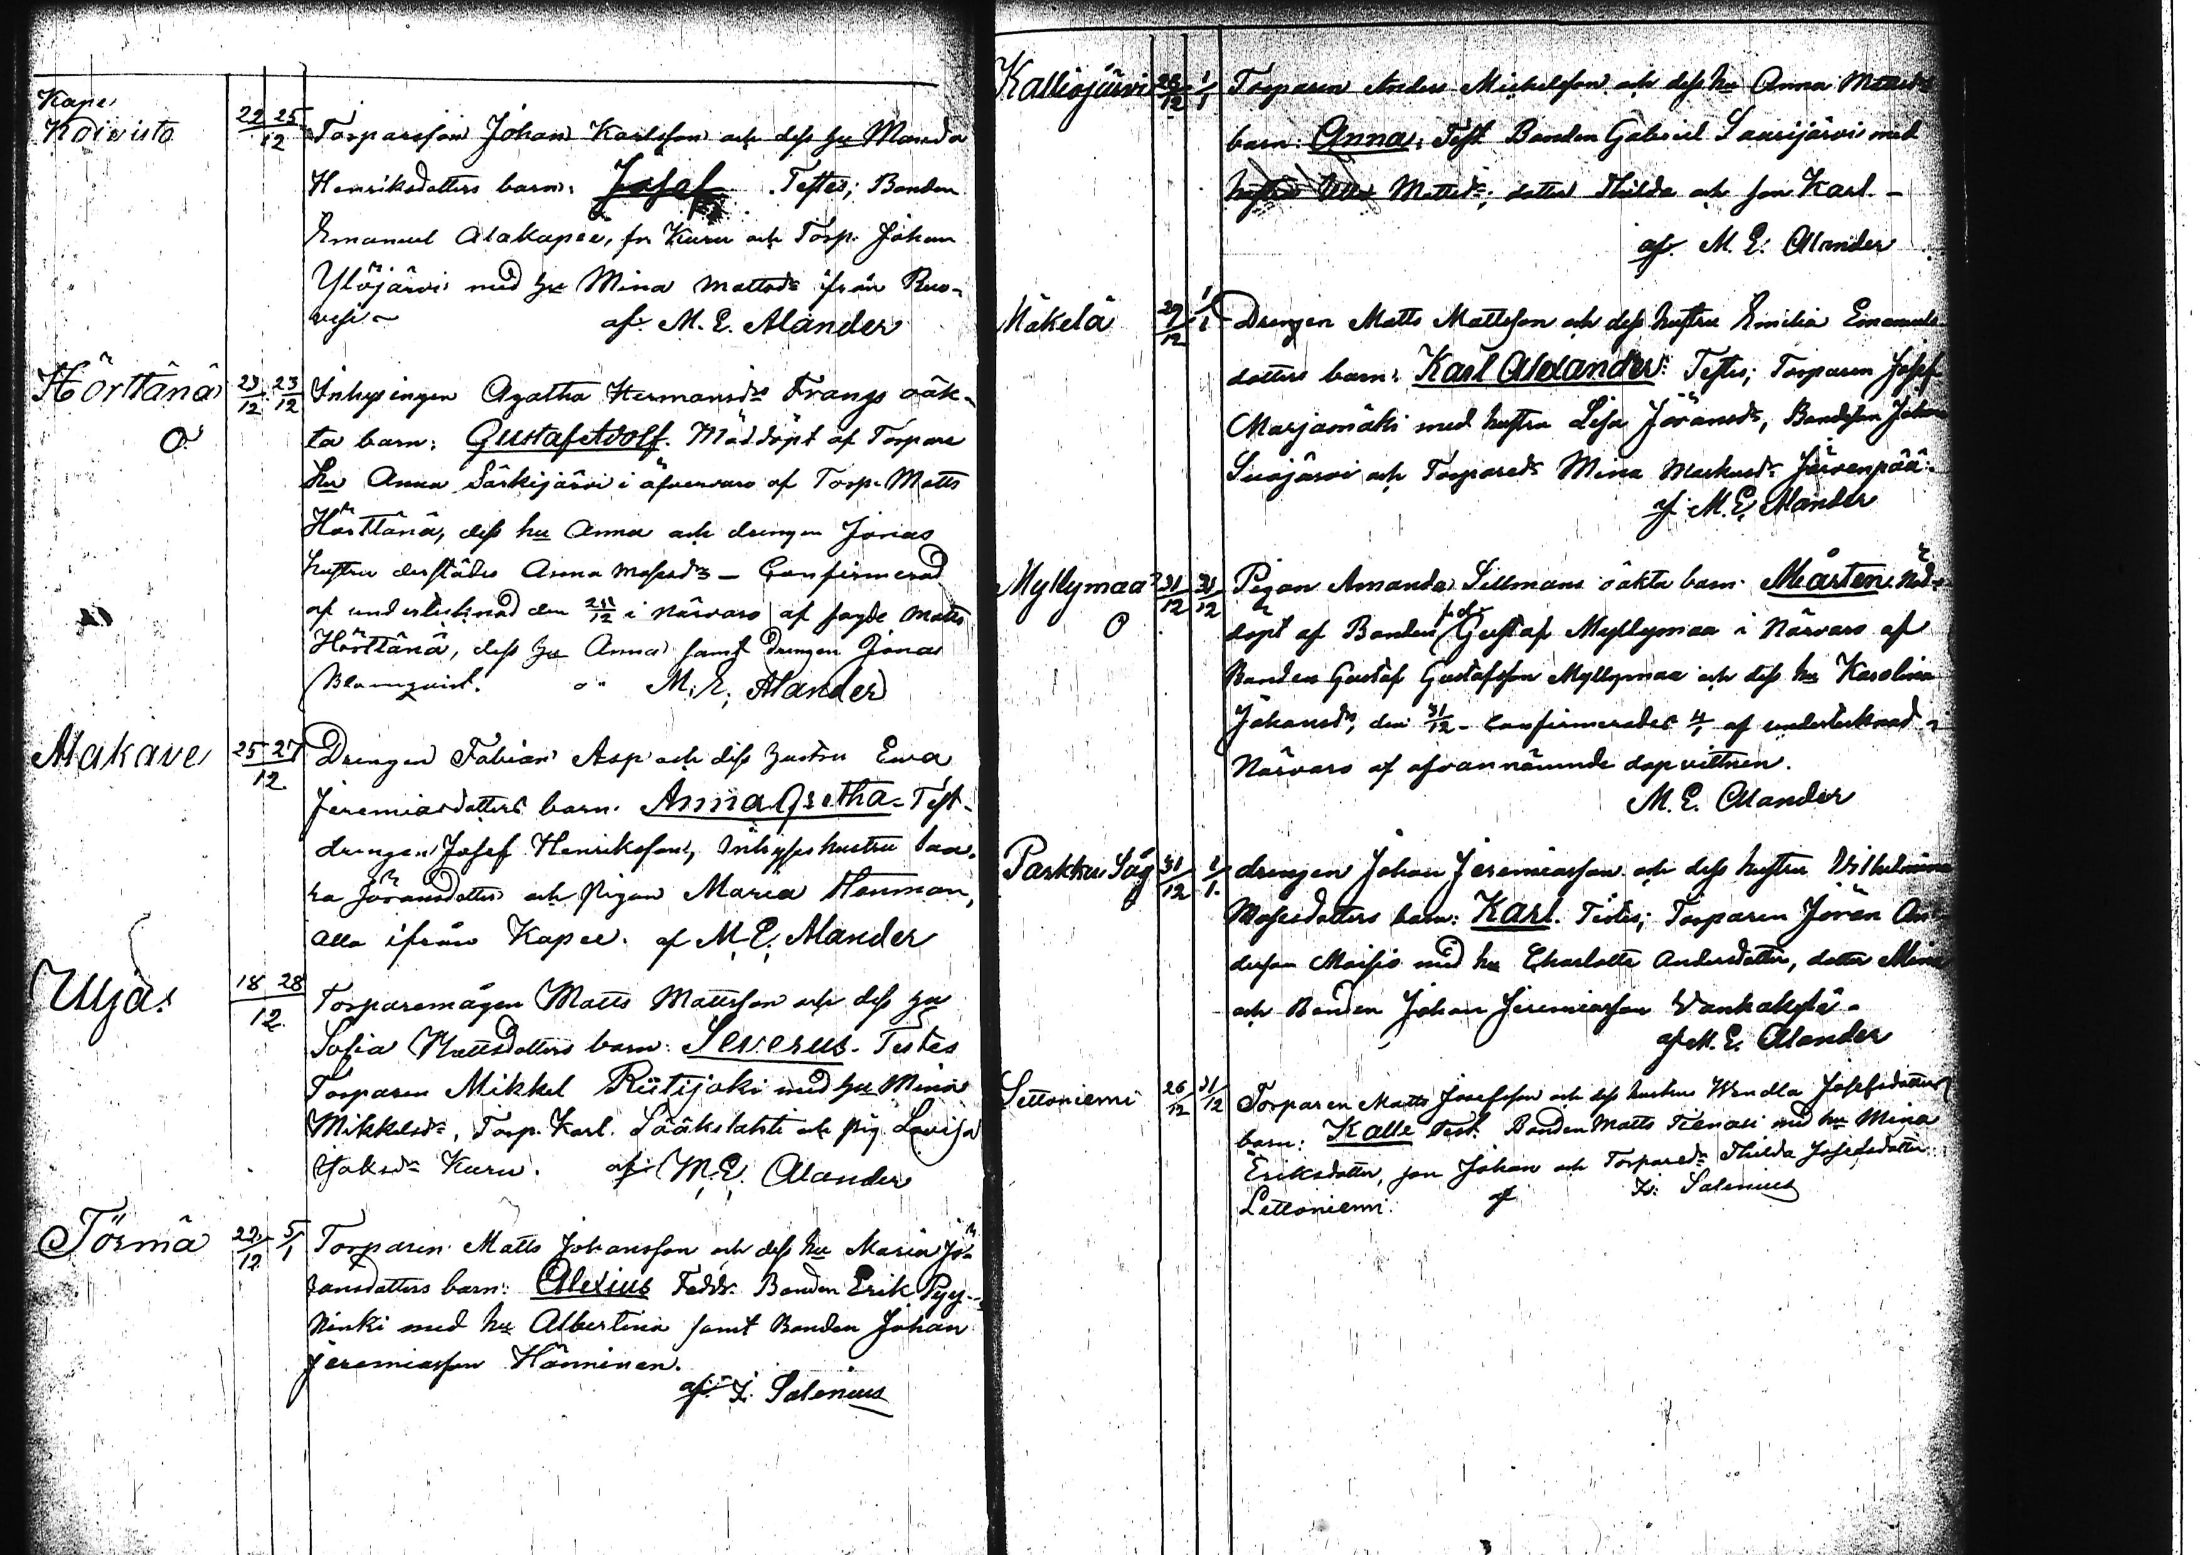 Kape
Koivisto 22 25/12 Torparesson Johan Karlsson och dess hu Manda
Henriksdotters barn: Josef. Testes; Bonden
Emanuel Alakapee, fr Kuru och Torp. Johan
Ylöjärvi med hu Mina Mattsdr ifrån Ruo-
vesi – af M. E. Alander
Hörttänä 23/12 23/12 Inhysingen Agatha Hermansdr Frangs oäk-
O ta barn: Gustaf Adolf. Nöddöpt af Torpare
hu Anna Särkijärvi i öfvervaro af Torp. Matts
Hörttänä, dess hu Anna och drengen Jonas
hustru derstädes Anna Mosesdr – Confirmerad
af undertecknad den 25/12 i närvaro af sagde Matts
Hörttänä, dess hu Anna samt Drengen Jonas
Blomqvist. M. E. Alander
Alakave 25 27/12 Drengen Fabian Asp och dess hustru Ewa
Jeremiasdotters barn. Anna Gretha. Test.
drengen Josef Henriksson, Inhyses hustru Saa-
ra Jöransdotter och Pigan Maria Henman,
alla ifrån Kapee. af M. E. Alander
Uljas 18 28/12 Torparemågen Matts Mattsson och dess hu
Sofia Mattsdotters barn: Severus. Testes
Torparen Mikkel Riitijoki med hu Mina
Mikkelsdr, Torp. Karl. Sääkslahti och pig. Lovisa
Jaksdr Kuru. af M. E. Alander
Törmä 22/12 5/1 Torparen Matts Johansson och dess hu Maria Jö-
ransdotters barn: Alexius Fadd. Bonden Erik Pyy-
ninki med hu Albertina samt Bonden Johan
Jeremiasson Hänninen.
af Salenius
Kalliojärvi 28/12 1/1 Torparen Anders Mickelsson och dess hu Anna Mattsdr
barn: Anna. Test Bonden Gabriel Saarijärvi med
hustru Ulla Mattsdr, dotter Thilda och son Karl. –
af M. E. Alander
Mäkelä 29/12 1/1 Drengen Matts Mattsson och dess hustru Emilia Emanuels-
dotters barn: Karl Alexander: Testes; Torparen Josef
Marjamäki med hustru Lisa Jöransdr, Bondeson Johan
Suojärvi och Torparedr Mina Markusdr Järvenpää.
af M. E. Alander
Myllymaa 31/12 31/12 Pigan Amanda Sillmans oäkta barn Mårten. Nöd-
O döpt af Bonden fd Gustaf Myllymaa i Närvaro af
Bonden Gustaf Gustafsson Myllymaa och dess hu Karolina
Johansdr, den 31/12 – Confirmerades af undertecknad i
Närvaro af ofvannämnde dopvittnen.
M. E. Alander
Parkku Såg 31/12 1/1. drengen Johan Jeremiasson och dess hustru Wilhelmina
Mosesdotters barn: Karl. Testes; Torparen Jöran An-
dersson Moisio med hu Charlotta Andersdotter, dotter Mina
och Bonden Johan Jeremiasson Vankakylä.
af M. E. Alander
Lettoniemi 26/12 31/12 Torparen Matts Josefsson och dess hustru Wendla Josefsdotters
barn: Kalle Test. Bonden Matts Teinasi med hu Mina
Eriksdotter, son Johan och Torparedr Thilda Josefsdotter
Lettoniemi. af Salenius